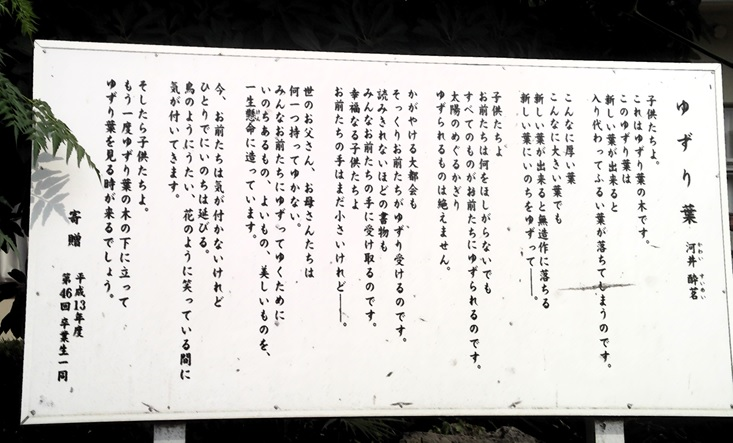 ゆずり葉
河井 酔茗
かわい すいめい
子供たちよ。
これはゆずり葉の木です。
このゆずり葉は
新しい葉が出来ると
入り代わってふるい葉が落ちてしまうのです。
こんなに厚い葉
こんなに大きい葉でも
新しい葉が出来ると無造作に落ちる
新しい葉にいのちをゆずって――。
子供たちよ
お前たちは何をほしがらないでも
すべてのものがお前たちにゆずられるのです。
太陽のめぐるかぎり
ゆずられるものは絶えません。
かがやける大都会も
そっくりお前たちがゆずり受けるのです。
読みきれないほどの書物も
みんなお前たちの手に受け取るのです。
幸福なる子供たちよ
お前たちの手はまだ小さいけれど――。
世のお父さん、お母さんたちは
何一つ持ってゆかない。
みんなお前たちにゆずってゆくために
いのちあるもの、よいもの、美しいものを、
一生懸命に造っています。
今、お前たちは気が付かないけれど
ひとりでにいのちは延びる。
鳥のようにうたい、花のように笑っている間に
気が付いてきます。
そしたら子供たちよ。
もう一度ゆずり葉の木の下に立って
ゆずり葉を見る時が来るでしょう。
寄贈
平成13年度
第46回 卒業生一同